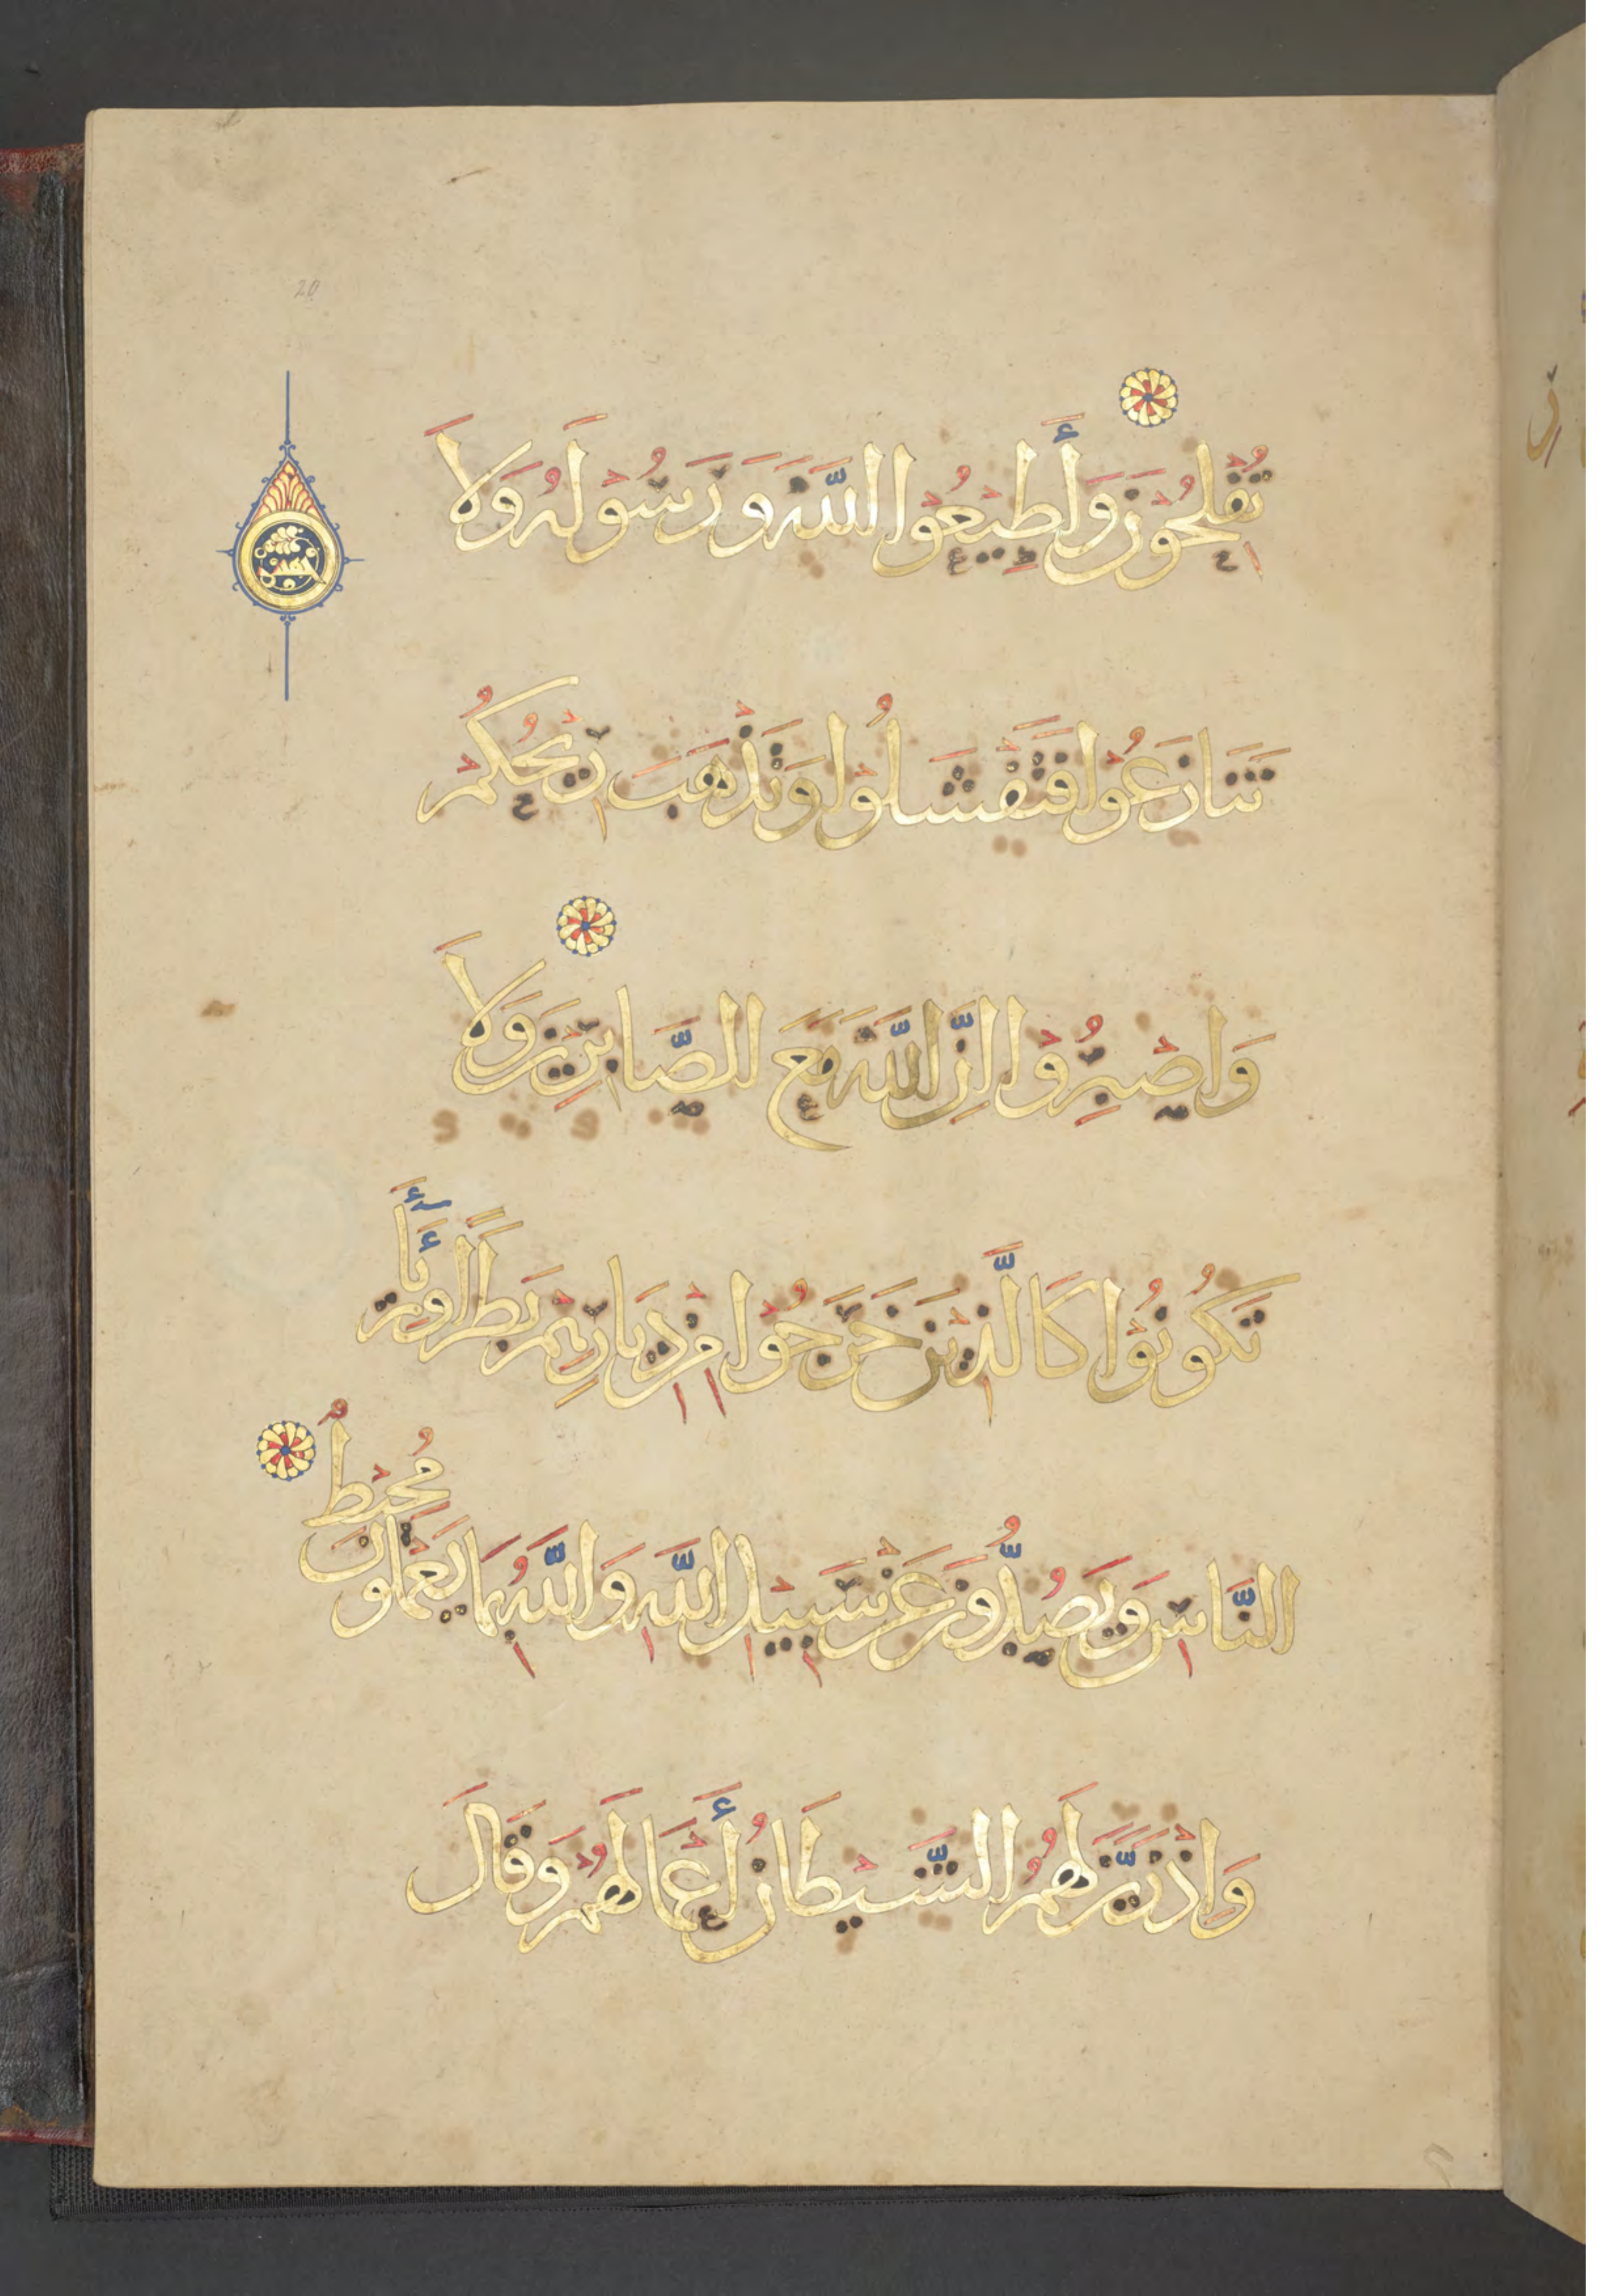 20
تُفْلِحُونَ وَأَطِيعُوا اللَّهَ وَرَسُولَهُ وَلَا
تَنَازَعُوا فَتَفْشَلُوا وَتَذْهَبَ رِيحُكُمْ
وَاصْبِرُوا إِنَّ اللَّهَ مَعَ الصَّابِرِينَ وَلَا
تَكُونُوا كَالَّذِينَ خَرَجُوا مِنْ دِيَارِهِمْ بَطَرًا وَرِئَاءَ
النَّاسِ وَيَصُدُّونَ عَنْ سَبِيلِ اللَّهِ وَاللَّهُ بِمَا يَعْمَلُونَ مُحِيطٌ
وَإِذْ زَيَّنَ لَهُمُ الشَّيْطَانُ أَعْمَالَهُمْ وَقَالَ